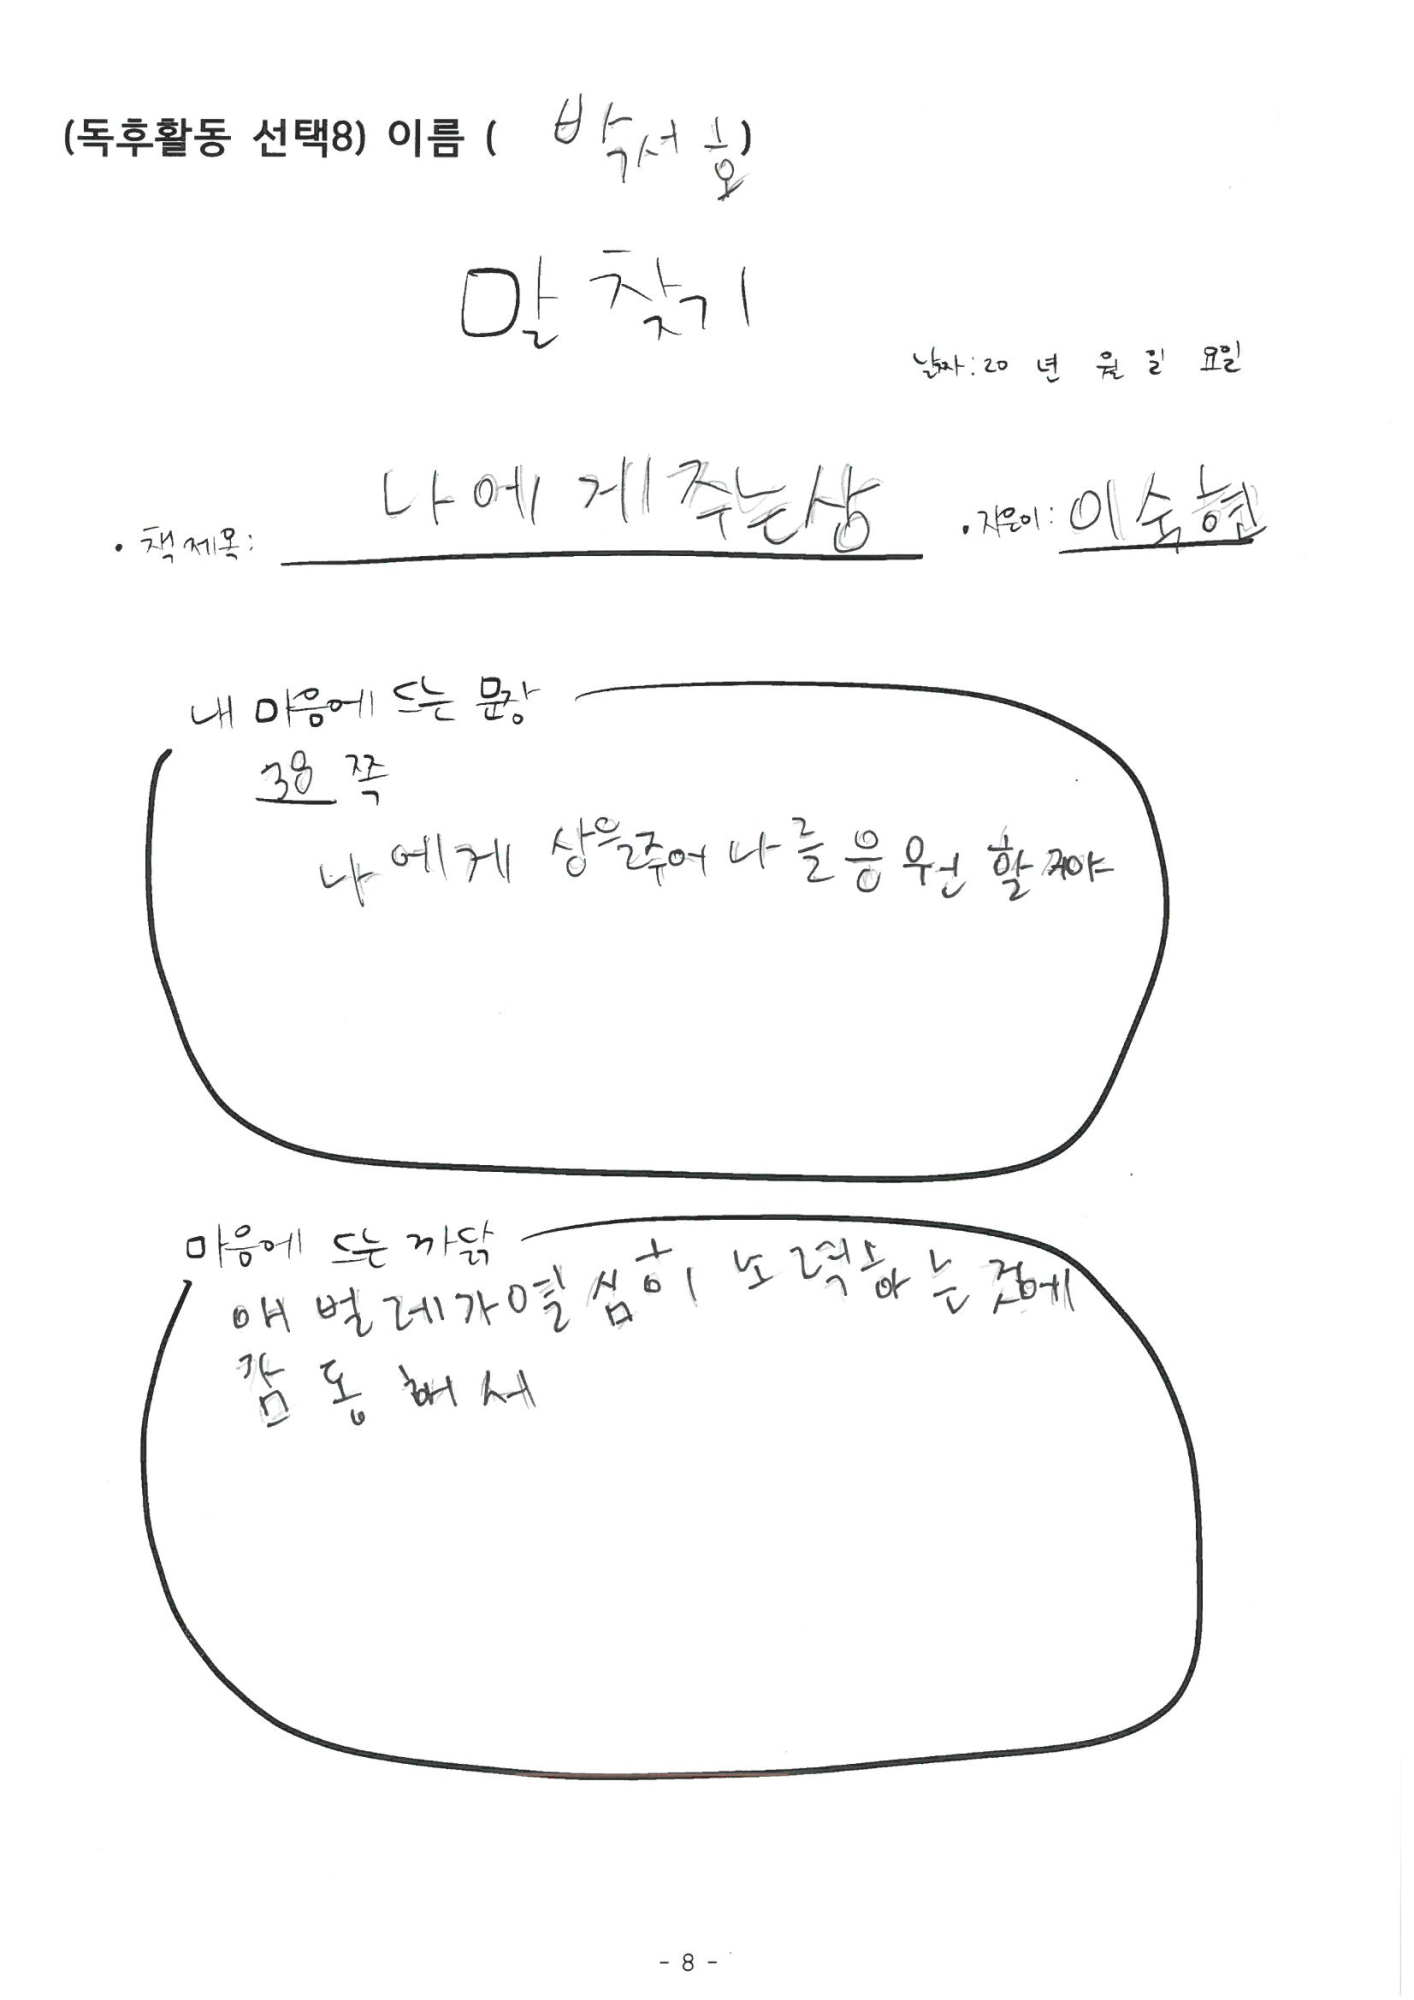 (독후활동 선택8) 이름 ( 박서홍)
말 찾기
날짜:20 년 월 일 요일
• 책 제목: 나에게 주는 상 • 지은이: 이숙현
내 마음에 드는 문장
38 쪽
나에게 상을 주어 나를 응원 할 꺼야
마음에 드는 까닭
애벌레가 열심히 노력하는 것에
감동해서
- 8 -